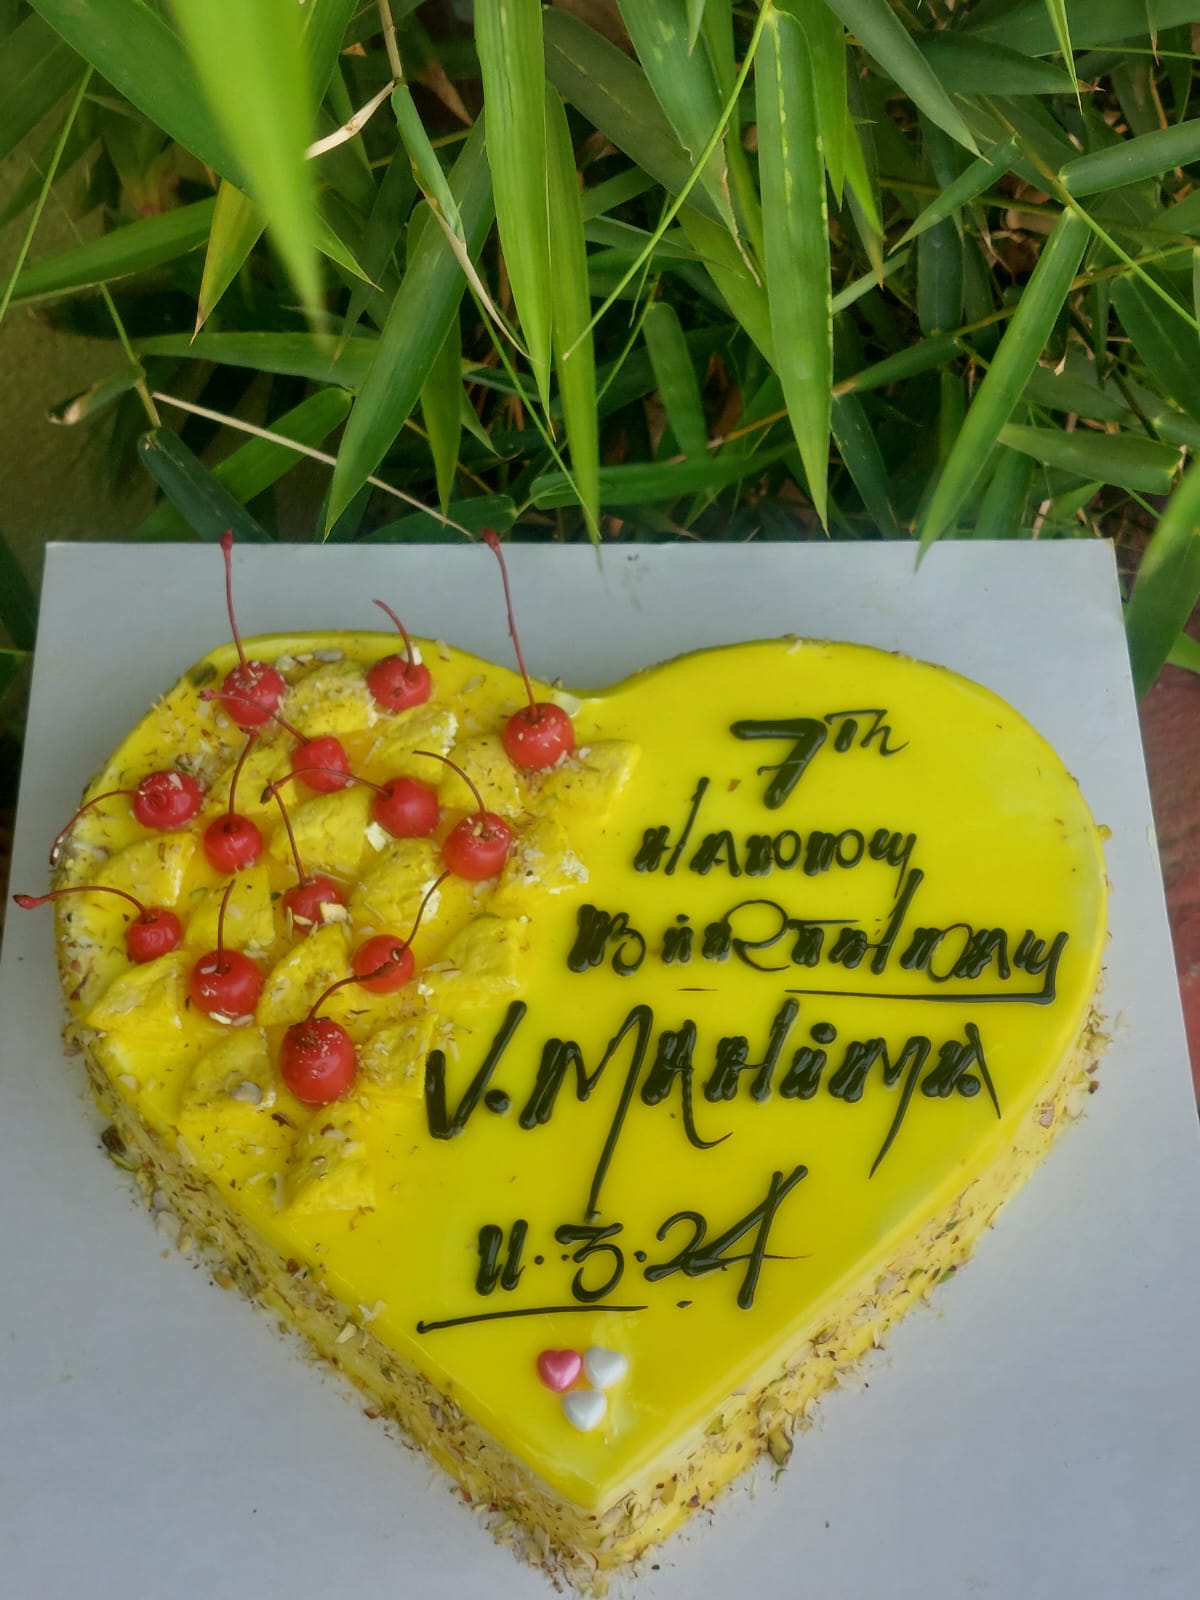 7Th
Happy
Birthday
V. MAHiMA
11.3.24